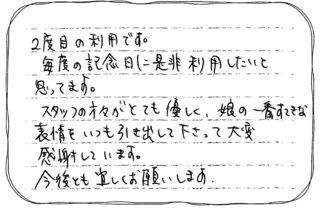 2度目の利用です。
毎度の記念日に是非利用したいと
思ってます。
スタッフの方々がとても優しく、娘の一番すてきな
表情をいつも引き出して下さって大変
感謝しています。
今後とも宜しくお願いします.